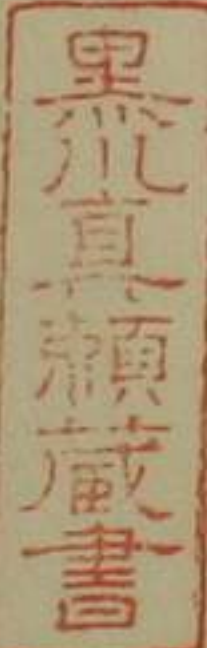 黒川真頼蔵書